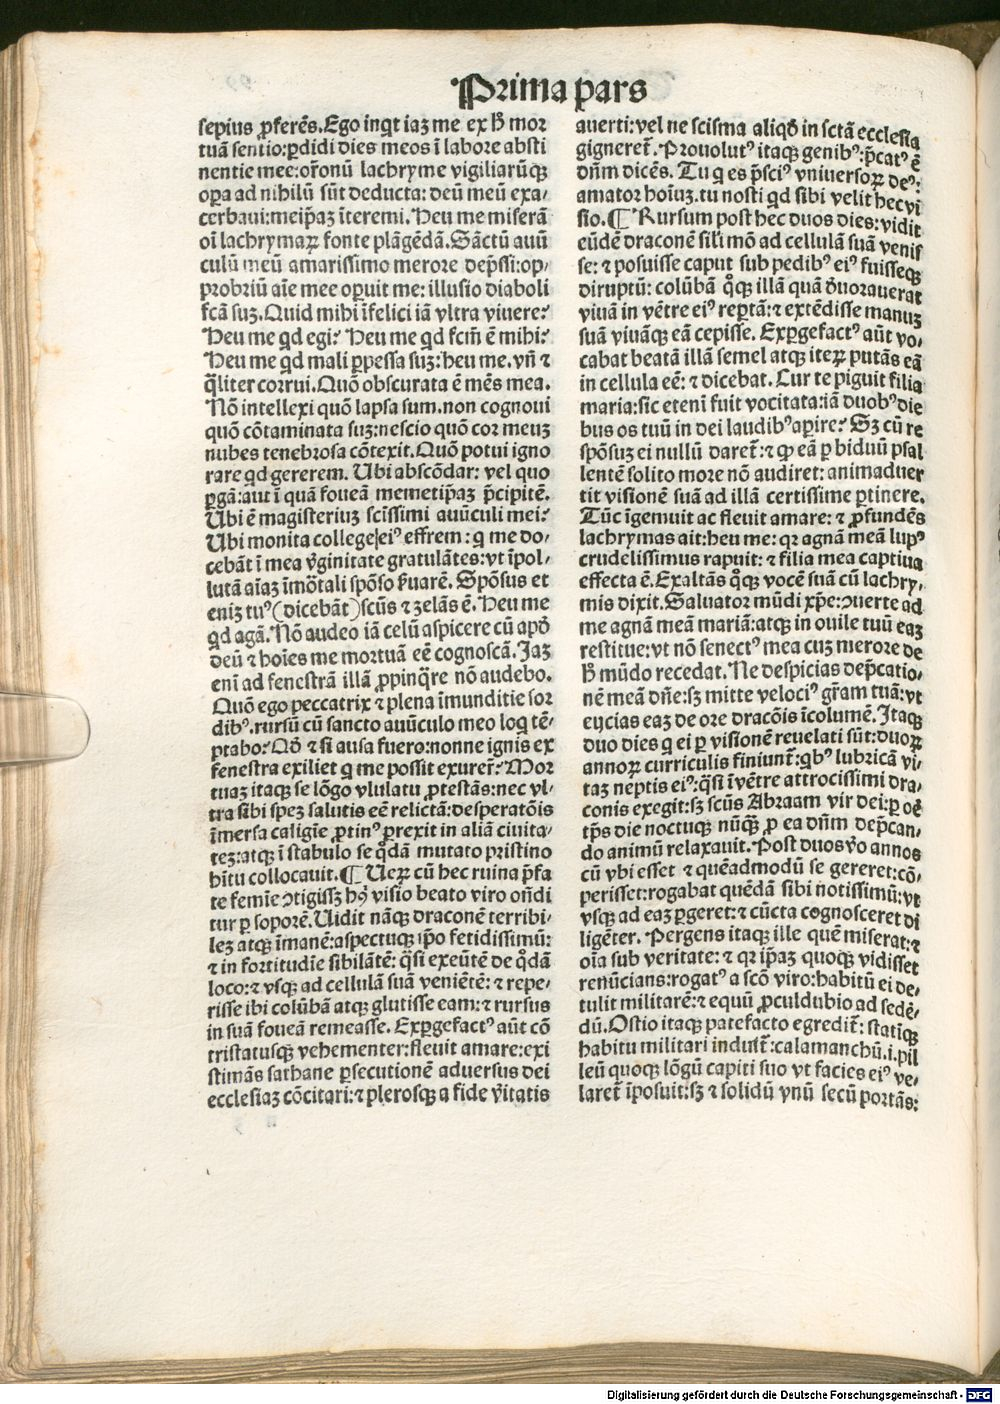 Prima pars
sepius ꝓferēs. Ego inqͥt iaꝫ me ex hͦ mor
tuā sentio: ꝑdidi dies meos ī labore absti
nentie mee: or̄onū lachryme vigiliarūqꝫ
oꝑa ad nihilū sūt deducta: deū meū exa-
cerbaui: meip̄aꝫ īteremi. Heu me miserā
oī lachrymaꝝ fonte plāgēdā. Sāctū auū
culū meū amarissimo merore dep̄ssi: op-
probriū aīe mee oꝑuit me: illusio diaboli
fcā suꝫ. Quid mihi īfelici iā vltra viuere?
Heu me qd egi? Heu me qd fcm̄ ē mihi?
Heu me qd mali ꝑpessa suꝫ: heu me. vn̄ ⁊
qͣliter corrui. Quō obscurata ē mēs mea.
Nō intellexi quō lapsa sum. non cognoui
quō cōtaminata suꝫ: nescio quō cor meuꝫ
nubes tenebrosa cōtexit. Quō potui igno
rare qd gererem. Ubi abscōdar: vel quo
ꝑgā: aut ī quā foueā memetip̄aꝫ p̄cipitē.
Ubi ē magisteriuꝫ scīssimi auūculi mei?
Ubi monita college ei⁹ effrem: q me do-
cebāt ī mea v̄ginitate gratulātes: vt īpol-
lutā aīaꝫ īmōtali spōso ẜuarē. Spōsus et
eniꝫ tu⁹ (dicebāt) scūs ⁊ zelās ē. Heu me
qd agā. Nō audeo iā celū aspicere cū apđ
deū ⁊ hoīes me mortuā eē cognoscā. Jaꝫ
enī ad fenestrā illā ꝓpinqͣre nō audebo.
Quō ego peccatrix ⁊ plena īmunditie sor
dib⁹. rursū cū sancto auūculo meo loq tē-
ptabo? Qđ ⁊ si ausa fuero: nonne ignis ex
fenestra exiliet q me possit exurer̄? Mor
tuaꝫ itaqꝫ se lōgo vlulatu ꝓtestās: nec vl-
tra sibi speꝫ salutis eē relictā: desperatōis
īmersa caligīe ꝓtin⁹ ꝑrexit in aliā ciuita-
teꝫ: atqꝫ ī stabulo se qͦdā mutato pristino
hītu collocauit. ¶ Ueꝝ cū hec ruina p̄fa
te femīe ↄtigissꝫ hꝰ visio beato viro on̄di
tur ꝑ soporē. Uidit nāqꝫ draconē terribi-
leꝫ atqꝫ īmanē: aspectuqꝫ ip̄o fetidissimū:
⁊ in fortitudīe sibilātē: qͣsi exeūtē de qͦdā
loco: ⁊ vsqꝫ ad cellulā suā veniētē: ⁊ repe-
risse ibi colūbā atqꝫ glutisse eam: ⁊ rursus
in suā foueā remeasse. Exꝑgefact⁹ aūt cō
tristatusqꝫ vehementer: fleuit amare: exi
stimās sathane ꝑsecutionē aduersus dei
ecclesiaꝫ cōcitari: ⁊ plerosqꝫ a fide v̄itatis
auerti: vel ne scisma aliqđ in sctā ecclesia
gigneret̄. Prouolut⁹ itaqꝫ genib⁹: p̄cat⁹ ē
dn̄m dicēs. Tu q es p̄sci⁹ vniuersoꝝ de⁹:
amator hoīuꝫ. tu nosti qd sibi velit hec vi
sio. ¶ Rursum post hec duos dies: vidit
eūdē draconē sili mō ad cellulā suā venis
se: ⁊ posuisse caput sub pedib⁹ ei⁹ fuisseqꝫ
diruptū: colūbā qͦqꝫ illā quā đuorauerat
viuā in vētre ei⁹ reꝑtā: ⁊ extēdisse manuꝫ
suā viuāqꝫ eā cepisse. Exꝑgefact⁹ aūt vo-
cabat beatā illā semel atqꝫ iteꝝ putās eā
in cellula eē: ⁊ dicebat. Cur te piguit filia
maria: sic etenī fuit vocitata: iā duob⁹ die
bus os tuū in dei laudib⁹ aꝑire? Sꝫ cū re
spōsuꝫ ei nullū daret̄: ⁊ ꝙ eā ꝑ biduū psal
lentē solito more nō audiret: animaduer
tit visionē suā ad illā certissime ꝑtinere.
Tūc īgemuit ac fleuit amare: ⁊ ꝓfundēs
lachrymas ait: heu me: qꝛ agnā meā lup⁹
crudelissimus rapuit: ⁊ filia mea captiua
effecta ē. Exaltās qͦqꝫ vocē suā cū lachry-
mis dixit. Saluator mūdi xp̄e: ↄuerte ad
me agnā meā mariā: atqꝫ in ouile tuū eaꝫ
restitue: vt nō senect⁹ mea cuꝫ merore de
hͦ mūdo recedat. Ne despicias dep̄catio-
nē meā dn̄e: sꝫ mitte veloci⁹ gr̄am tuā: vt
eijcias eaꝫ de ore dracōis īcolumē. Itaqꝫ
duo dies q ei ꝑ visionē reuelati sūt: duoꝝ
annoꝝ curriculis finiunt̄: qͥb⁹ lubricā vi-
taꝫ neptis ei⁹: qͣsi ī vētre attrocissimi dra-
conis exegit: sꝫ scūs Abraam vir dei: ꝑ oē
tp̄s die noctuqꝫ nūqͣꝫ ꝓ ea dn̄m dep̄can-
do animū relaxauit. Post duos v̄o annos
cū vbi esset ⁊ quēadmodū se gereret: cō-
perisset: rogabat quēdā sibi notissimū: vt
vsqꝫ ad eaꝫ ꝑgeret: ⁊ cūcta cognosceret di
ligēter. Pergens itaqꝫ ille quē miserat: ⁊
oīa sub veritate: ⁊ qꝛ ip̄aꝫ quoqꝫ vidisset
renūcians: rogat⁹ a scō viro: habitū ei de-
tulit militarē: ⁊ equū ꝓculdubio ad sedē-
dū. Ostio itaqꝫ patefacto egredit̄: statīqꝫ
habitu militari induit̄: calamanchū. i. pil
leū quoqꝫ lōgū capiti suo vt facies ei⁹ ve-
laret̄ īposuit: sꝫ ⁊ solidū vnū secū portās:
Digitalisierung gefördert durch die Deutsche Forschungsgemeinschaft - DFG